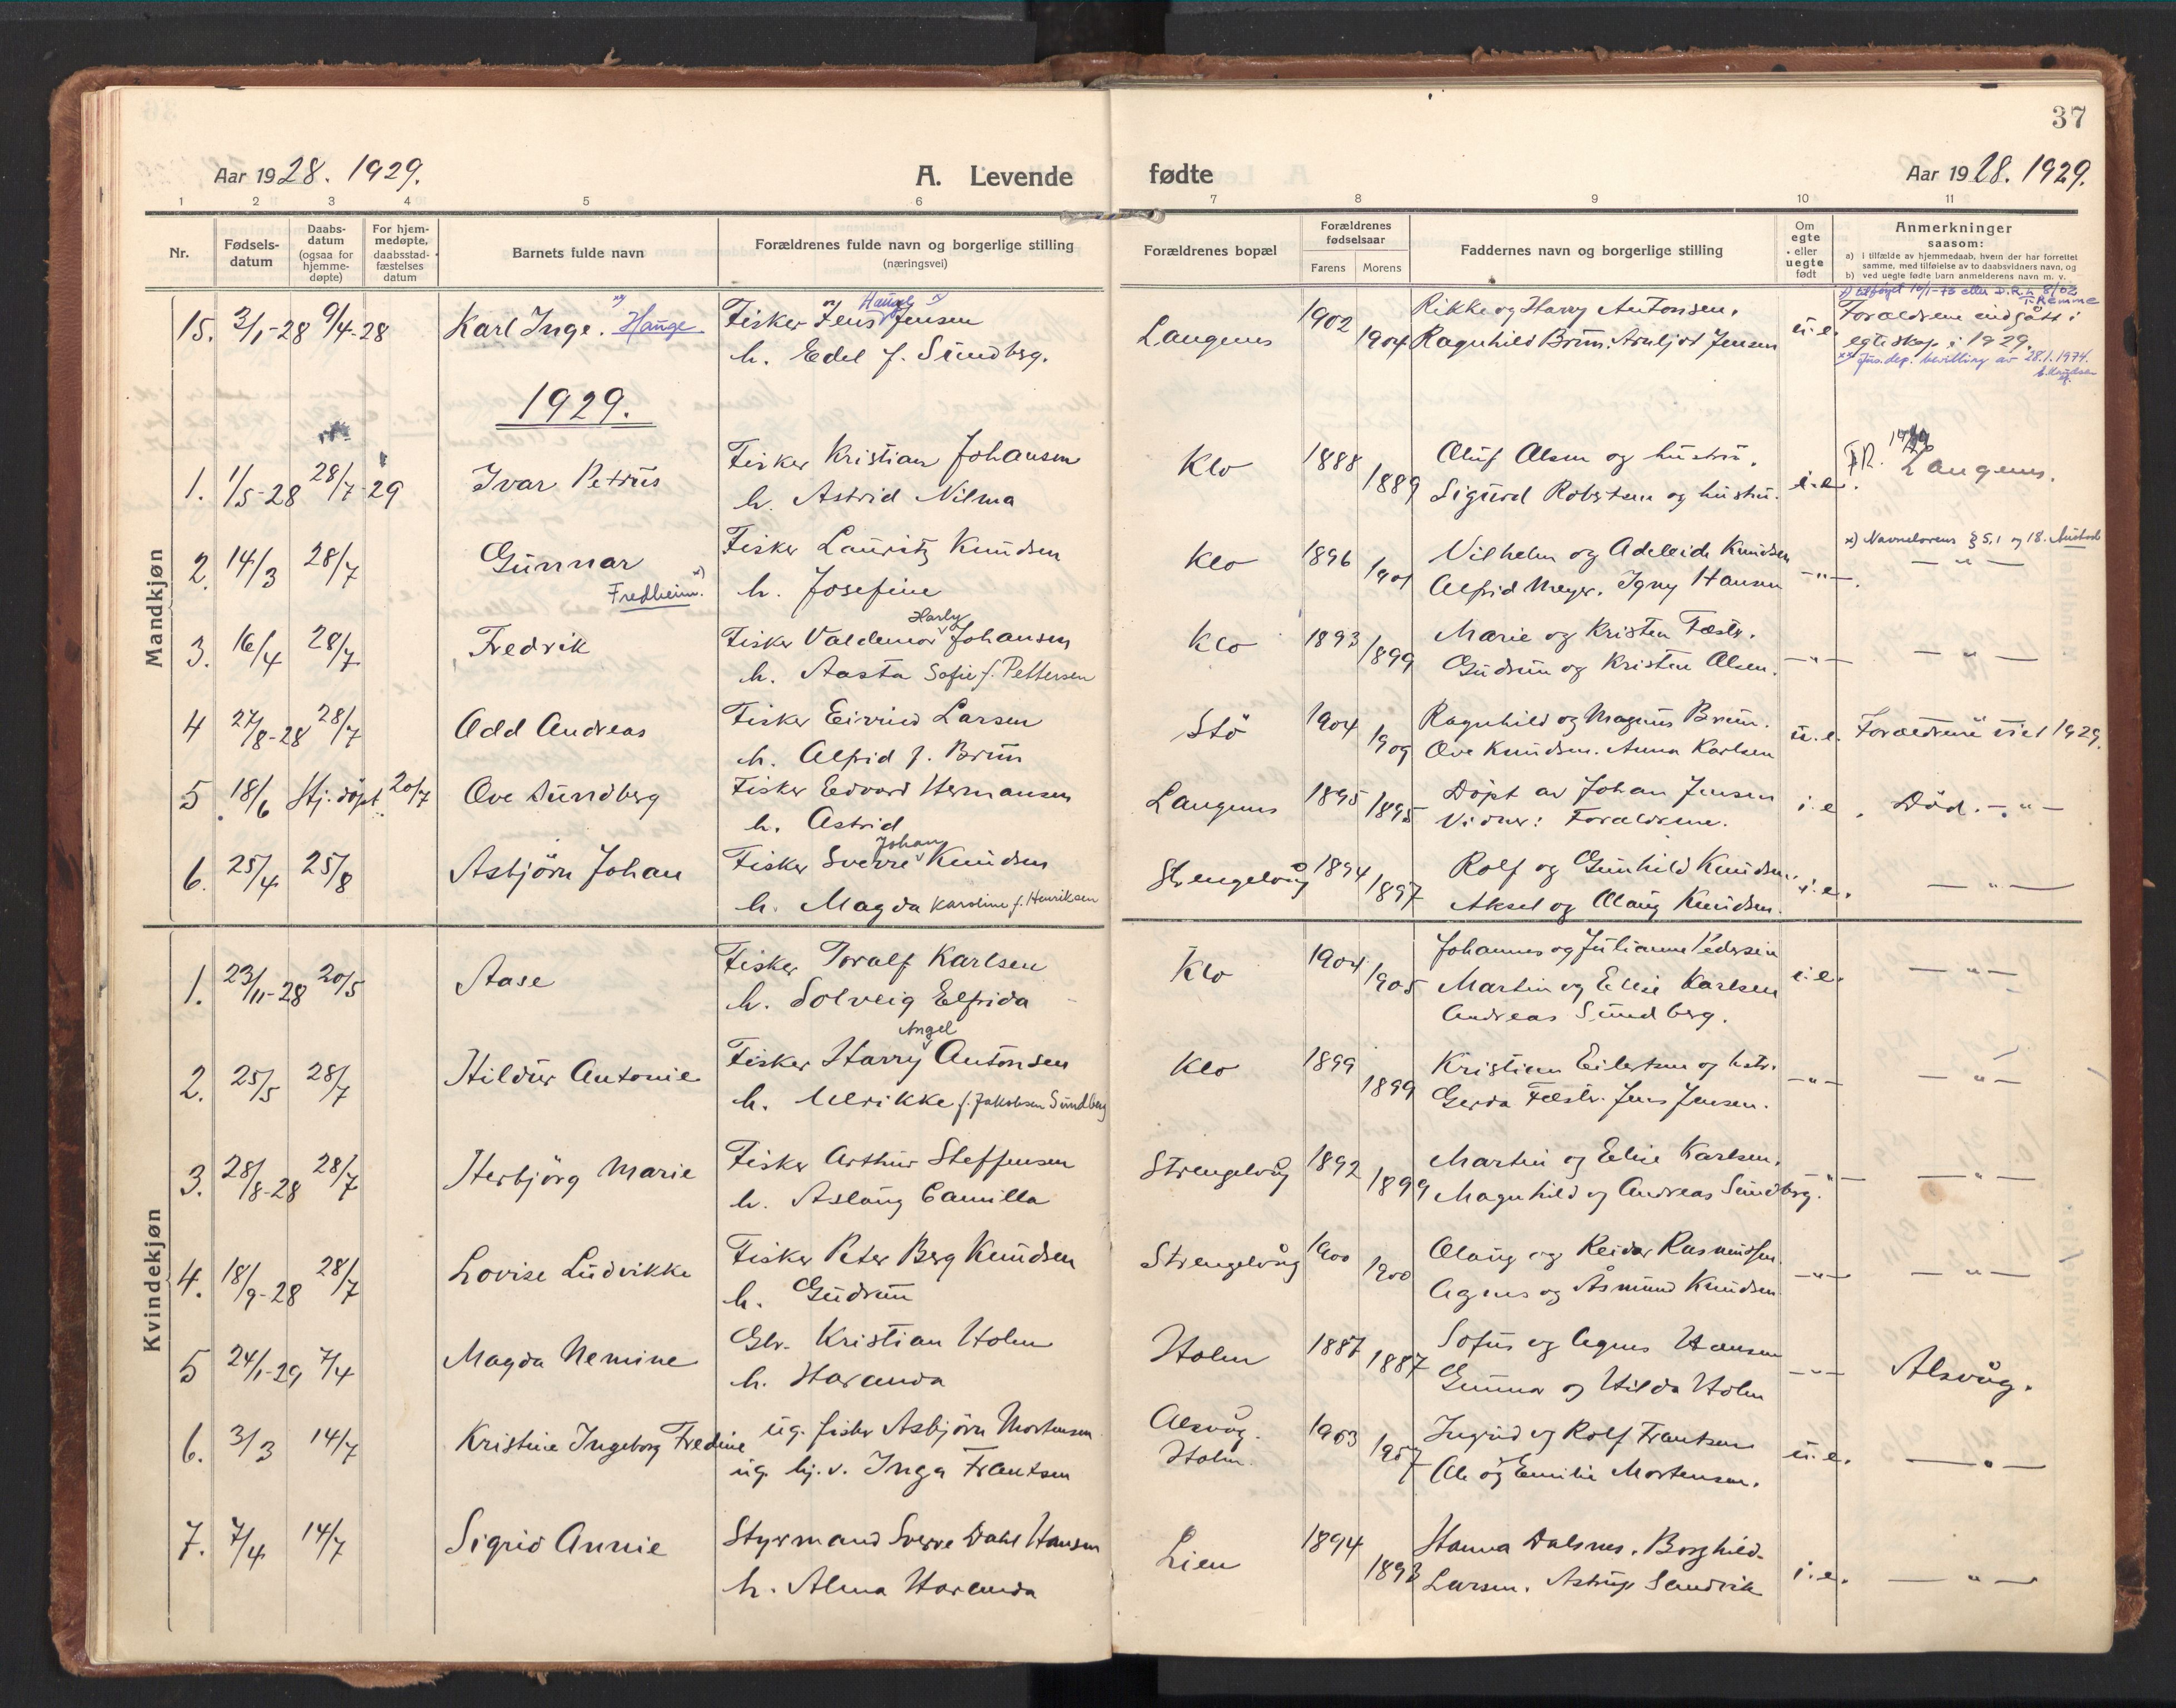 37
Aar 1928. 1929.
A. Levende
fødte
Aar 1928. 1929.
1 2 3 4 5 6 7 8 9 10 11
Nr.
Fødsels-
datum
Daabs-
datum
(ogsaa for
hjemme-
døpte)
For hjem-
medøpte,
daabsstad-
fæstelses
datum
Barnets fulde navn
Forældrenes fulde navn og borgerlige stilling
(næringsvei)
Forældrenes bopæl
Forældrenes
fødselsaar
Farens Morens
Faddernes navn og borgerlige stilling
Om
egte
eller
uegte
født
Anmerkninger
saasom:
a) i tilfælde av hjemmedaab, hvem der har forrettet
samme, med tilføielse av to daabsvidners navn, og
b) ved uegte fødte barn anmelderens navn m. v.
Mandkjøn
15. 3/1-28 9/4-28 Karl Inge. xx) Hauge Fisker Jens Hauge x) Jensen
h. Edel f. Sundberg.
Langenes 1902 1904 Rikke og Harry Antonsen.
Ragnhild Brun. Arnljot Jensen u.e.
Forældrene indgått i
egteskap i 1929.
xx) Jus.dep. bevilling av 28.1.1974.
1929.
1. 1/5-28 28/7-29 Ivar Petrus Fisker Kristian Johansen
h. Astrid Nilma
Klo 1888 1889 Oluf Olsen og hustru.
Sigurd Robertsen og hustru. i.e. Langenes.
2. 14/3 28/7 Gunnar Fredheim x) Fisker Lauritz Knudsen
h. Josefine
Klo 1896 1901 Vilhelm og Adeleide Knudsen
Alfrid Meyer. Igny Hansen -"-. x) Navnelovens § 5,1 og 18.
- " -
3. 16/4 28/7 Fredrik Fisker Valdemar Harly Johansen
h. Aasta Sofie f. Pettersen
Klo 1893 1899 Marie og Kristen Fæstv.
Gudrun og Kristine Olsen. -"- - " -
4 27/8-28 28/7 Odd Andreas Fisker Eivind Larsen
h. Alfrid f. Brun
Stö 1904 1909 Ragnhild og Magnus Brun.
Ove Knudsen. Anna Karlsen u.e. Forældrene viet 1929.
5. 18/6 Hj. döpt 20/7 Ove Sundberg Fisker Edvard Hermansen
h. Astrid
Langenes 1895 1895 Döpt av Johan Jensen
Vidner: Forældrene. i.e. Död. - " -
6. 25/4 25/8 Asbjörn Johan Fisker Sverre Johan Knudsen
h. Magda Karoline f. Henriksen
Strengelvåg 1894 1897 Rolf og Gunhild Knudsen.
Aksel og Olaug Knudsen. i.e. - " -
Kvindekjøn
1. 23/11-28 20/5 Aase Fisker Toralf Karlsen
h. Solveig Elfrida
Klo 1904 1905 Johannes og Julianne Pedersen
Martin og Elise Karlsen
Andreas Sundberg. i.e. - " -
2. 25/5 28/7 Hildur Antonie Fisker Harry Angel Antonsen
h. Ulrikke f. Jakobsen Sundberg
Klo 1899 1899 Kristian Eilertsen og hstr.
Gerda Fæstv. Jens Jensen. -"- - " -
3. 28/8-28 28/7 Herbjörg Marie Fisker Arthur Steffensen
h. Aslaug Camilla
Strengelvåg 1892 1899 Martin og Elise Karlsen.
Magnhild og Andreas Sundberg. -"- - " -
4. 18/9-28 28/7 Lovise Ludvikke Fisker Peter Berg Knudsen
h. Gudrun
Strengelvåg 1900 1900 Olaug og Reidar Rasmussen.
Agnes og Åsmund Knudsen -"- - " -
5 24/1-29 7/4 Magda Nemine Gbr. Kristian Holm
h. Haranda
Holm 1887 1887 Sofus og Agnes Hansen
Gunnar og Hilda Holm -"- Alsvåg.
6. 3/3 14/7 Kristine Ingeborg Fredine ug. fisker Asbjörn Mortensen
ug. hj.v. Inga Frantsen
Alsvåg.
Holm. 1903 1907 Ingrid og Rolf Frantsen
Ole og Emilie Mortensen. u.e. - " -
7. 7/4 14/7 Sigrid Annie Styrmand Sverre Dahl Hansen
h. Alma Haranda
Lien 1894 1893 Hanna Dalsnes. Borghild
Larsen. Astrup Sandvik i.e. - " -